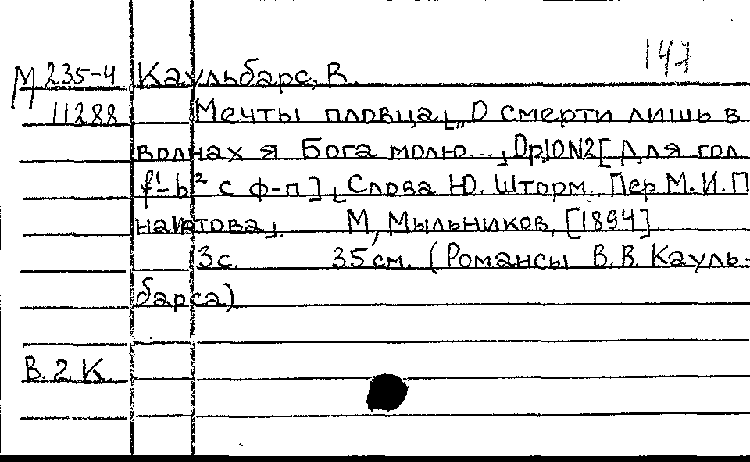 147
М 235-4 Каульбарс, В.
11288 Мечты пловца [„О смерти лишь в
волнах я Бога молю...] Op10N2 [Для гол.
f¹-b² с ф-п], [Слова Ю. Шторм. Пер. М. И. П
натова].     М, Мыльников, [1894]
3с.     35см. (Романсы В. В. Кауль-
барса)
В. 2 К.